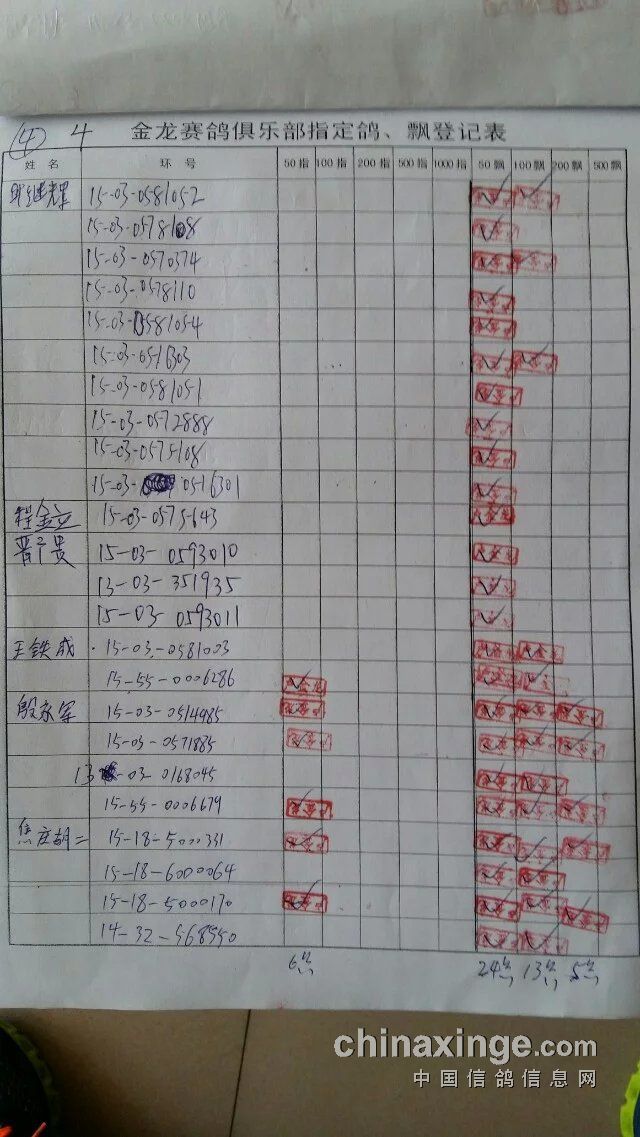 ④ 4 金龙赛鸽俱乐部指定鸽、飘登记表
姓名 环号 50指 100指 200指 500指 1000指 50飘 100飘 200飘 500飘
15-03-0581052
15-03-0578108
15-03-0570374
15-03-0578110
15-03-0581054
15-03-0516303
15-03-0581051
15-03-0572888
15-03-0575108
15-03-0516301
程金立 15-03-0575643
晋子贵 15-03-0593010
13-03-351935
15-03-0593011
王铁成 15-03-0581003
15-55-0006286
殷永军 15-03-0514985
15-03-0571885
13-03-0168045
15-55-0006679
15-18-5000331
15-18-6000064
15-18-5000170
14-32-568550
6 24 13 5
chinaxinge.com
中国信鸽信息网